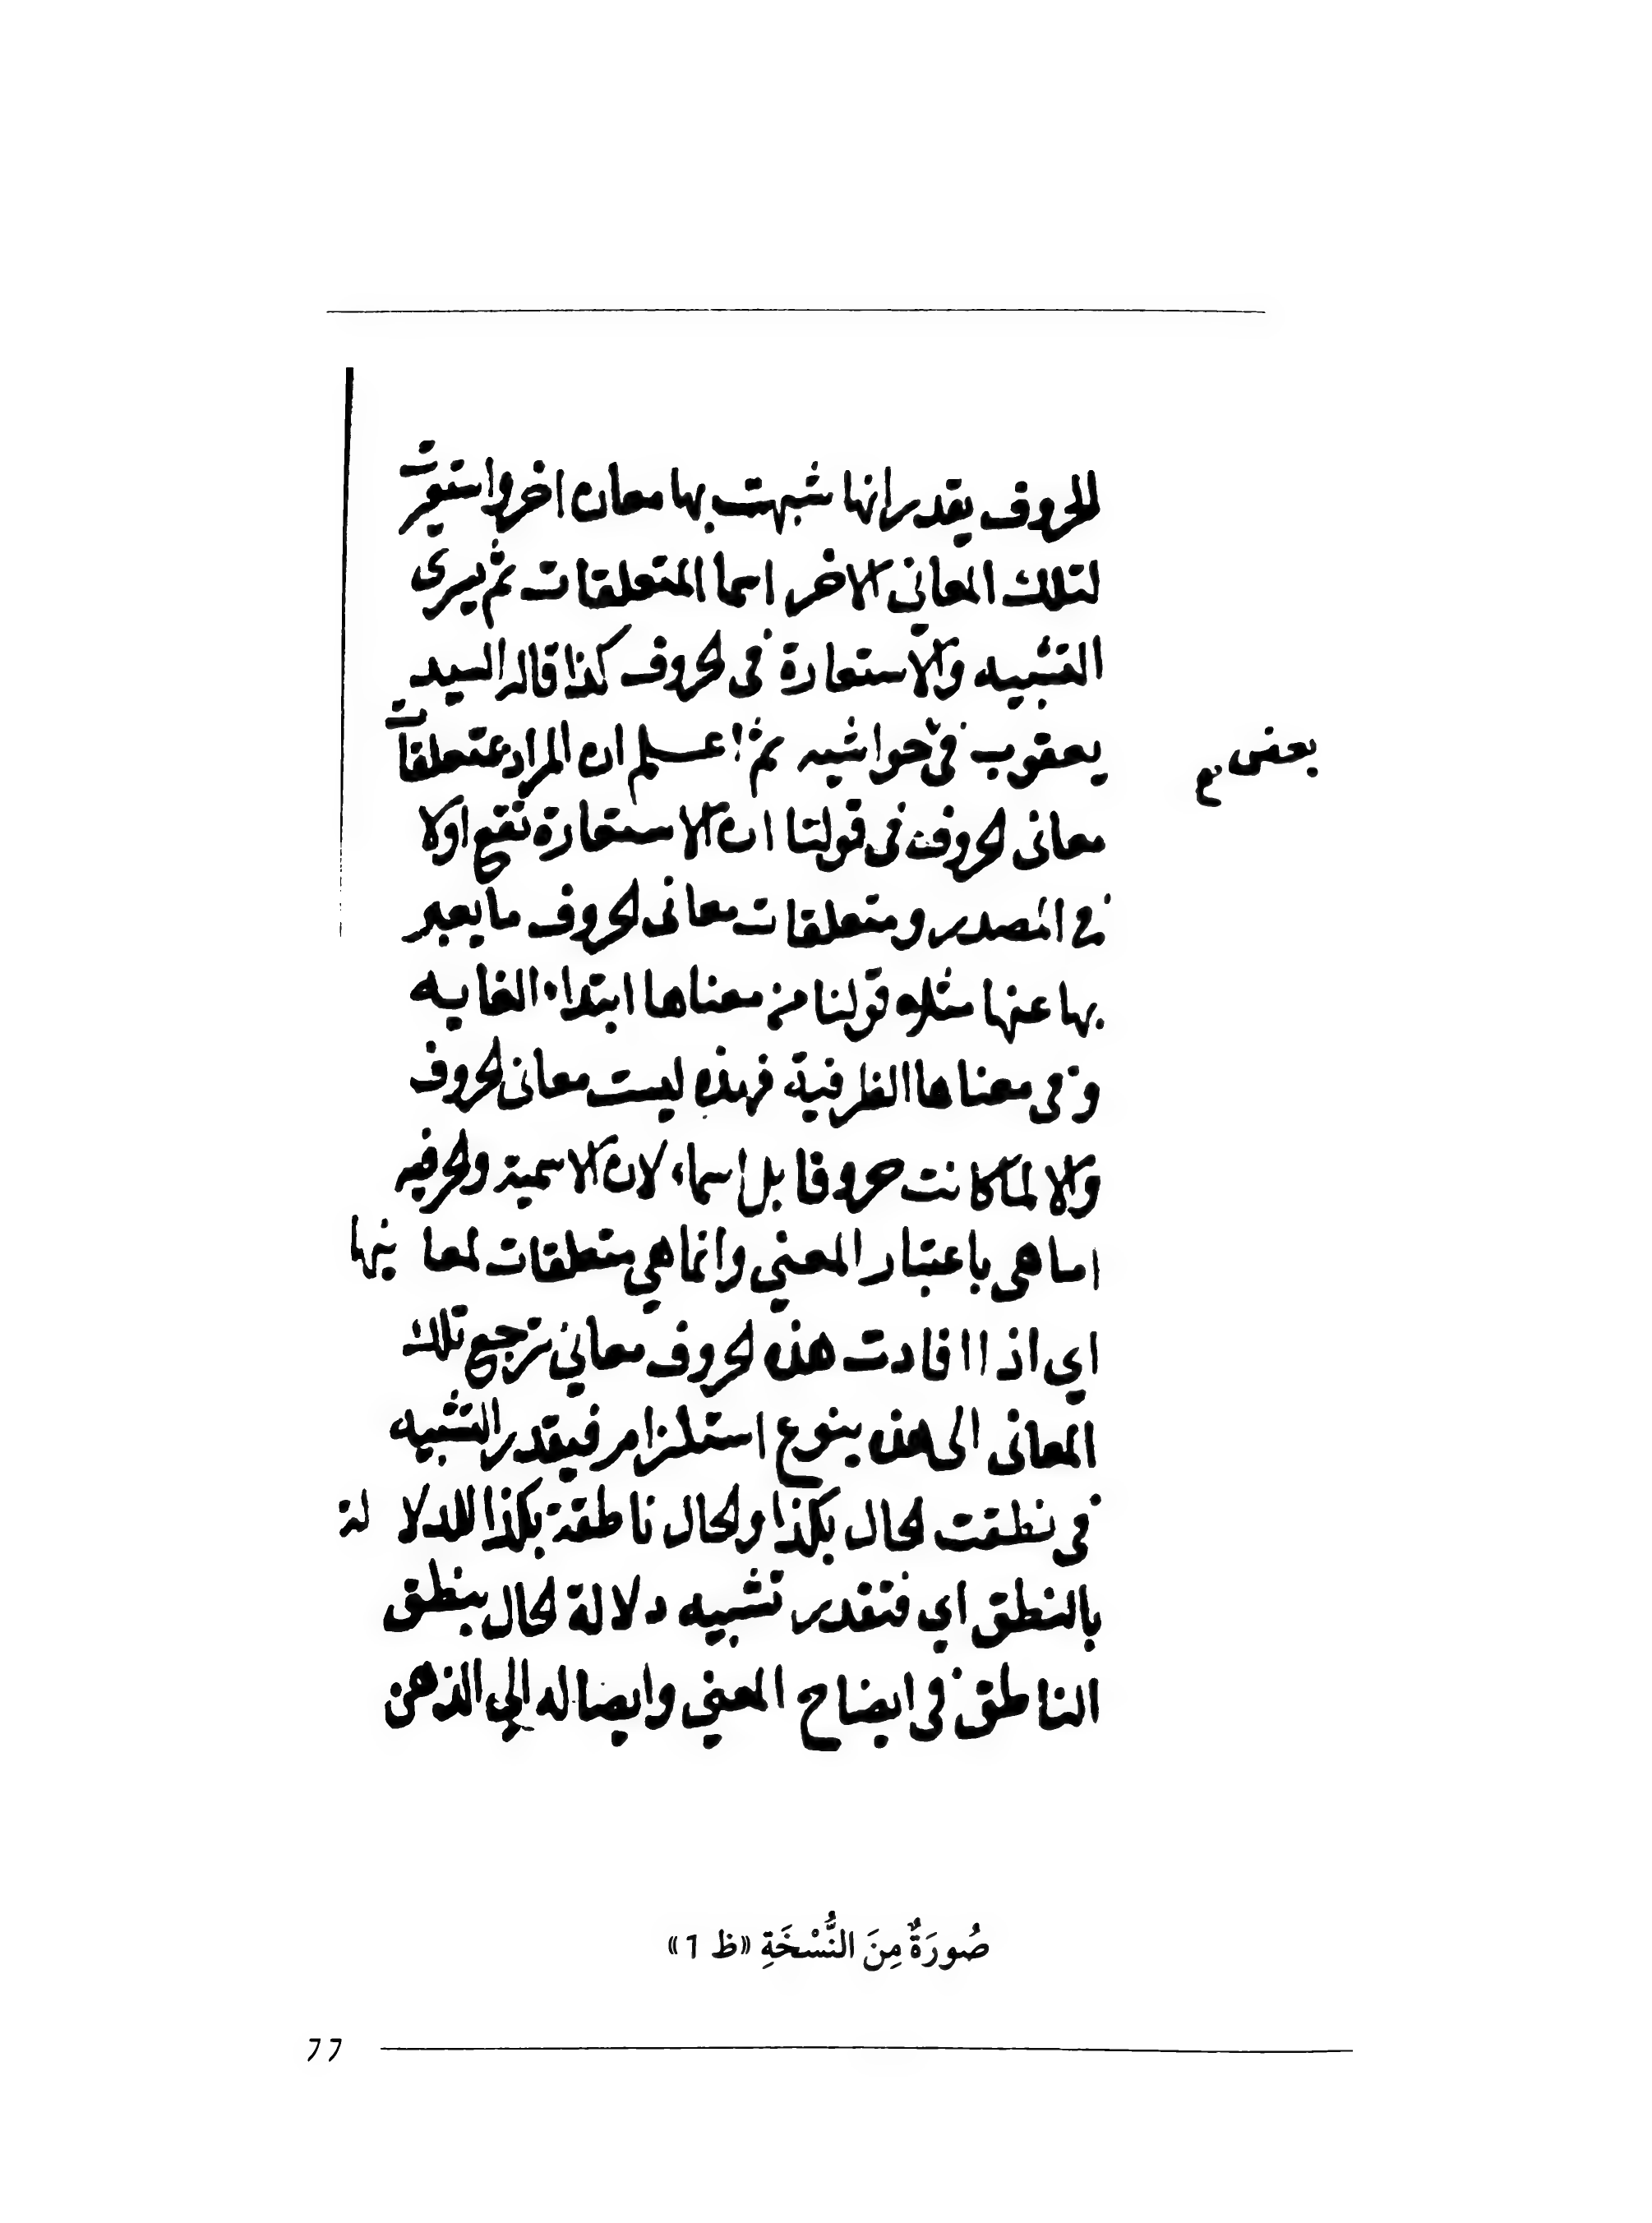 للحروف يقدر انها شبهت بها معان اخر واستعيرت
لتلك المعاني الاخر اسما المتعلقات ثم يسرى
التشبيه والاستعارة في الحروف كذا قاله السيد
يعقوب في حواشيه ثم اعلم ان المراد بمتعلقات
بعض
معانى الحروف فى قولنا ان الاستعارة تقع اولا
في المصدر ومتعلقات معانى الحروف ما يعبر
بها عنها مثلا قولنا من معناها ابتداء الغايه
وفى معناها الظرفية فهذه ليست معانى الحروف
والا لما كانت حروفا بل اسماء لان الاسمية والحرفيه
اما هى باعتبار المعني وانما هي متعلقات لمعا نيها
اي اذا افادت هذه الحروف معاني ترجع تلك
المعانى الى هذه بنوع استلزام فيقدر التشبيه
في نطقت الحال بكذا والحال ناطقة بكذا للدلا لة
بالنطق اي فتقدير تشبيه دلالة الحال بنطق
الناطق في ايضاح المعني وايصاله الي الذهن
صُورَةٌ مِنَ النُّسْخَةِ «ظ 1»
77